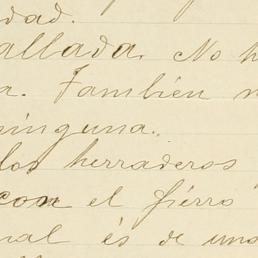 dad.
allada. No h
a. Tambien n
ninguna.
los herraderos
con el fierro
ual és de uno